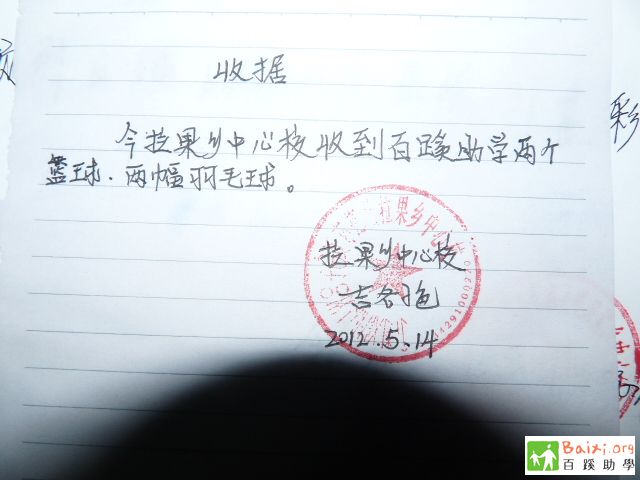 收据
今拉果乡中心校收到百蹊助学两个
篮球.两幅羽毛球。
拉果乡中心校
吉
2012.5.14
拉果乡中心
彩
Baixi.org
百蹊助學